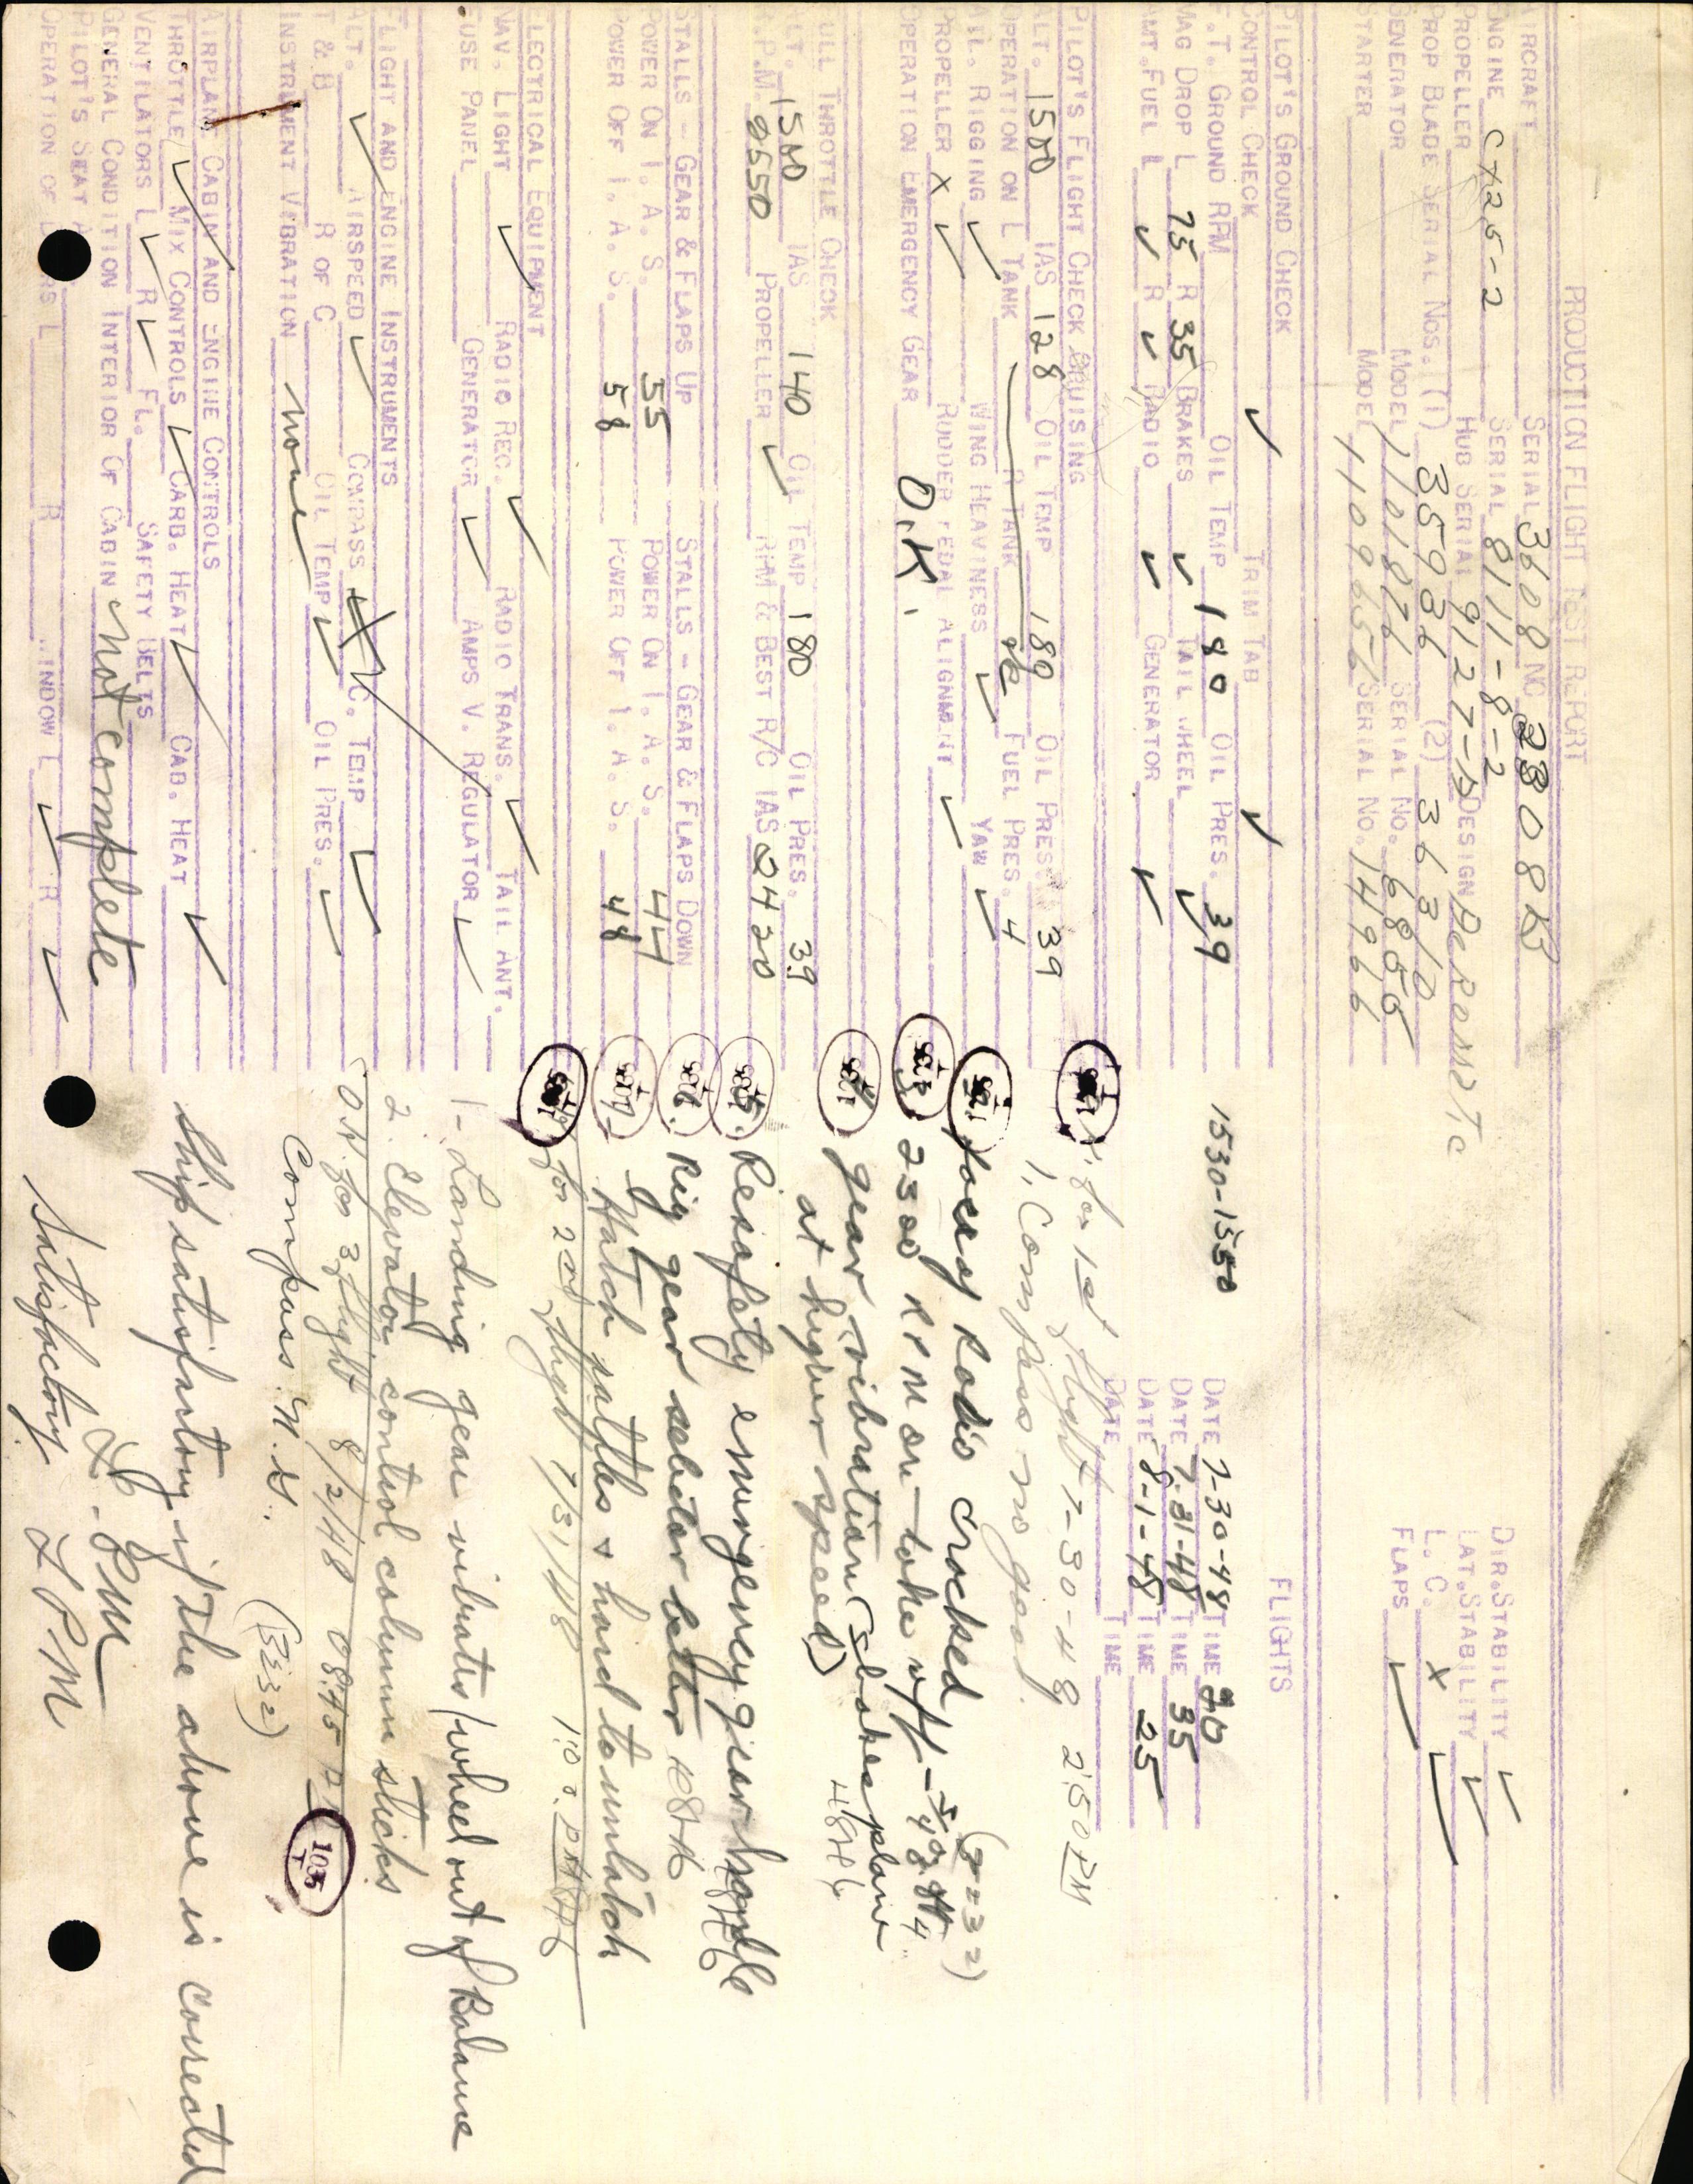 PRODUCTION FLIGHT TEST REPORT
AIRCRAFT SERIAL 3608 NC 2808K
ENGINE C 125-2 SERIAL 8111-8-2
PROPELLER HUB SERIAL 9127-D DESIGN Aeromatic
PROP BLADE SERIAL NOS. (1) 35936 (2) 36310
GENERATOR MODEL 1101876 SERIAL NO. 68855
STARTER MODEL 1109656 SERIAL NO. 14966
DIR. STABILITY ✓
LAT. STABILITY ✓
L. C. X ✓
FLAPS ✓
PILOT'S GROUND CHECK
CONTROL CHECK ✓ TRIM TAB ✓
F.T. GROUND RPM OIL TEMP 180 OIL PRES. 39
MAG DROP L 75 R 35 BRAKES ✓ TAIL WHEEL ✓
AMT. FUEL L ✓ R ✓ RADIO ✓ GENERATOR ✓
FLIGHTS
1530-1550
DATE 7-30-48 TIME 20
DATE 7-31-48 TIME 35
DATE 8-1-48 TIME 25
DATE TIME
PILOT'S FLIGHT CHECK CRUISING
ALT. 1500 IAS 128 OIL TEMP 180 OIL PRES. 39
OPERATION ON L TANK R TANK ok FUEL PRES. 4
AIL. RIGGING ✓ WING HEAVINESS ✓ YAW ✓
PROPELLER X ✓ RUDDER PEDAL ALIGNMENT ✓
OPERATION EMERGENCY GEAR O.K.
FULL THROTTLE CHECK
ALT. 1500 IAS 140 OIL TEMP 180 OIL PRES. 39
R.P.M. 2550 PROPELLER ✓ RPM & BEST R/C IAS 2430
STALLS - GEAR & FLAPS UP STALLS - GEAR & FLAPS DOWN
POWER ON I. A. S. 55 POWER ON I. A. S. 44
POWER OFF I. A. S. 58 POWER OFF I. A. S. 48
ELECTRICAL EQUIPMENT
NAV. LIGHT ✓ RADIO REC. ✓ RADIO TRANS. ✓ TAIL ANT.
FUSE PANEL GENERATOR ✓ AMPS V. REGULATOR ✓
FLIGHT AND ENGINE INSTRUMENTS
ALT. ✓ AIRSPEED ✓ COMPASS X C. TEMP ✓
T & B R OF C OIL TEMP ✓ OIL PRES. ✓
INSTRUMENT VIBRATION none
AIRPLANE CABIN AND ENGINE CONTROLS
THROTTLE ✓ MIX CONTROLS ✓ CARB. HEAT ✓ CAB. HEAT ✓
VENTILATORS L ✓ R ✓ FL. SAFETY BELTS
GENERAL CONDITION INTERIOR OF CABIN not complete
PILOT'S SEAT
OPERATION OF L R WINDOW L ✓ R ✓
for 1st flight 7-30-48 2:50 PM
1. Compass no good.
Radio cracked (8232)
2300 RPM on take off -
gear vibration (shakes plane
at higher speed)
Resafety emergency gear handle
Rig gear selector better
Hatch rattles & hard to unlatch
for 2nd flight 7/31/48 1:00
1- Landing gear vibrates/wheel out of Balance
2. Elevator control column sticks
O.K. for 3 flight 8/2/48 0845
1035
Compass N.G. (8232)
Ship satisfactory if the above is corrected
Satisfactory